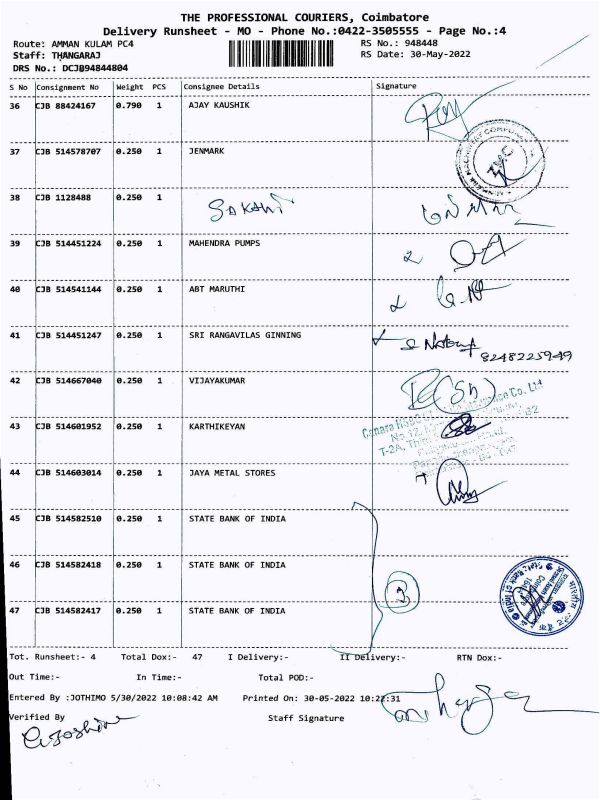 THE PROFESSIONAL COURIERS, Coimbatore
Delivery Runsheet - MO - Phone No.:0422-3505555 - Page No.:4
Route: AMMAN KULAM PC4 RS No.: 948448
Staff: THANGARAJ RS Date: 30-May-2022
DRS No.: DCJB94844804
S No Consignment No Weight PCS Consignee Details Signature
36 CJB 88424167 0.790 1 AJAY KAUSHIK
37 CJB 514578707 0.250 1 JENMARK
38 CJB 1128488 0.250 1
39 CJB 514451224 0.250 1 MAHENDRA PUMPS
40 CJB 514541144 0.250 1 ABT MARUTHI
41 CJB 514451247 0.250 1 SRI RANGAVILAS GINNING
8248225949
42 CJB 514667040 0.250 1 VIJAYAKUMAR
43 CJB 514601952 0.250 1 KARTHIKEYAN
44 CJB 514603014 0.250 1 JAYA METAL STORES
45 CJB 514582510 0.250 1 STATE BANK OF INDIA
46 CJB 514582418 0.250 1 STATE BANK OF INDIA
47 CJB 514582417 0.250 1 STATE BANK OF INDIA
Tot. Runsheet:- 4 Total Dox:- 47 I Delivery:- II Delivery:- RTN Dox:-
Out Time:- In Time:- Total POD:-
Entered By :JOTHIMO 5/30/2022 10:08:42 AM Printed On: 30-05-2022 10:22:31
Verified By Staff Signature